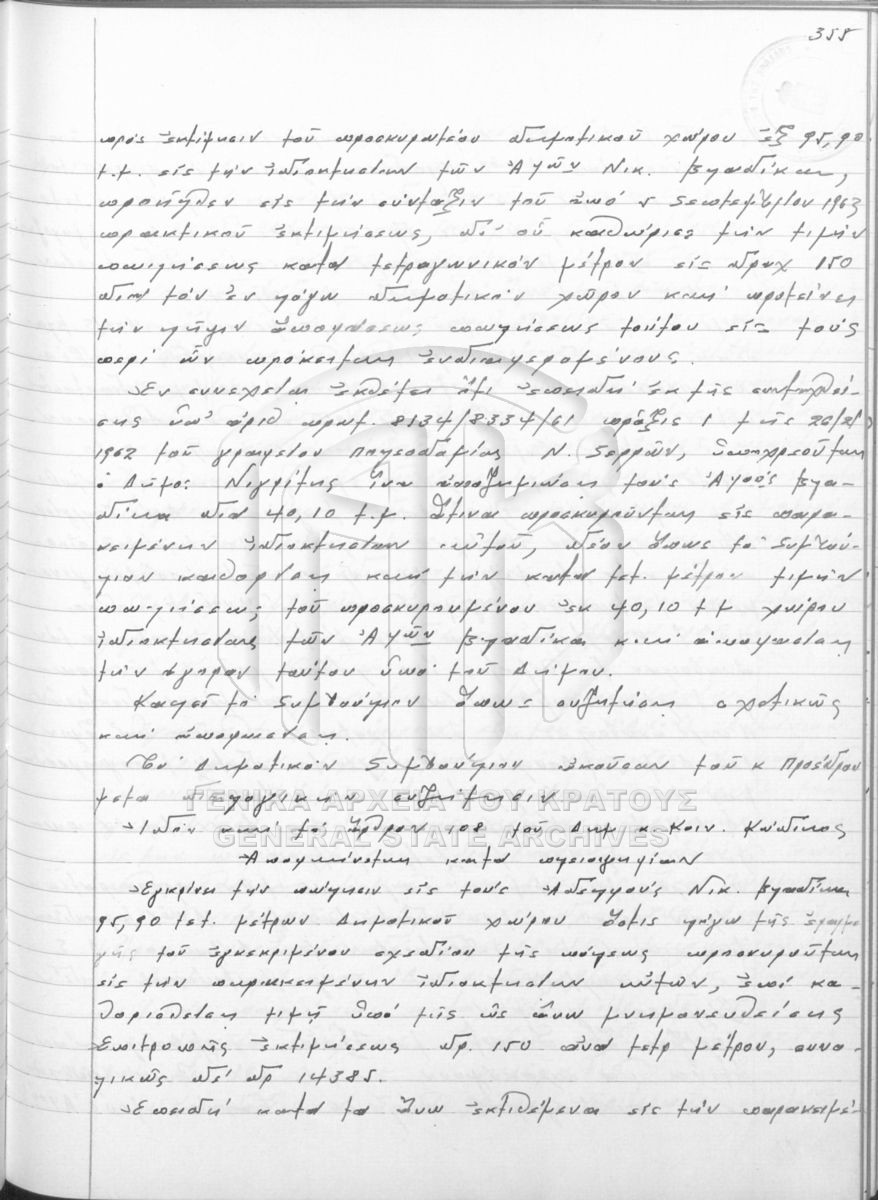 358
πρός ἐκτίμησιν τοῦ προσκυρωτέου δημοτικοῦ χώρου ἐξ 95,90
τ.μ. εἰς τήν ἰδιοκτησίαν τῶν Ἀφῶν Νικ. Βλαδίκα,
προῆλθεν εἰς τήν σύνταξιν τοῦ ἀπό 5 Σεπτεμβρίου 1963
πρακτικοῦ ἐκτιμήσεως, δι' οὗ καθώρισε τήν τιμήν
πωλήσεως κατά τετραγωνικόν μέτρον εἰς δραχ 150
διά τόν ἐν λόγω δημοτικόν χῶρον καί προτείνει
τήν λῆψιν ἀποφάσεως πωλήσεως τούτου εἰς τούς
περί ὧν πρόκειται ἐνδιαφερομένους.
Ἐν συνεχεία ἐκθέτει ὅτι ἐπειδή ἐκ τῆς συνταχθεί-
σης ὑπ' ἀριθ πρωτ. 8134/8334/61 πράξις 1 τῆς 26/2/
1962 τοῦ γραφείου Πολεοδομίας Ν. Σερρῶν, ὑποχρεοῦται
ὁ Δῆμος Νιγρίτης ἵνα ἀποζημιώση τούς Ἀφούς Βλα-
δίκα διά 40,10 τ.μ. ἅτινα προσκυροῦνται εἰς παρα-
κειμένην ἰδιοκτησίαν αὐτοῦ, δέον ὅπως τό Συμβού-
λιον καθορίση καί τήν κατά τετ. μέτρον τιμήν
πωλήσεως τοῦ προσκυρουμένου ἐκ 40,10 τ μ χώρου
ἰδιοκτησίας τῶν Ἀφῶν Βλαδίκα καί ἀποφασίση
τήν ἀγοράν τούτου ὑπό τοῦ Δήμου.
Καλεῖ τό Συμβούλιον ὅπως συζητήση σχετικῶς
καί ἀποφασίση.
Τό Δημοτικόν Συμβούλιον ἀκοῦσαν τοῦ κ Προέδρου
μετά διαλογικήν συζήτησιν
Ἰδόν καί τό ἄρθρον 108 τοῦ Δημ κ. Κοιν. Κώδικος
Ἀποφαίνεται κατά πλειοψηφίαν
Ἐγκρίνει τήν πώλησιν εἰς τούς Ἀδελφούς Νικ. Βλαδίκα
95,90 τετ. μέτρων Δημοτικοῦ χώρου ὅστις λόγω τῆς ἐφαρμο
γῆς τοῦ ἐγκεκριμένου σχεδίου τῆς πόλεως προσκυροῦται
εἰς τήν παρακειμένην ἰδιοκτησίαν αὐτῶν, ἐπί κα-
θορισθείση τιμῆ ὑπό τῆς ὡς ἄνω μνημονευθείσης
Ἐπιτροπῆς ἐκτιμήσεως δρ. 150 ἀνά τετρ μέτρον, συνο-
λικῶς δέ δρ 14385.
Ἐπειδή κατά τά ἄνω ἐκτιθέμενα εἰς τήν παρακειμέ-
ΓΕΝΙΚΑ ΑΡΧΕΙΑ ΤΟΥ ΚΡΑΤΟΥΣ
GENERAL STATE ARCHIVES